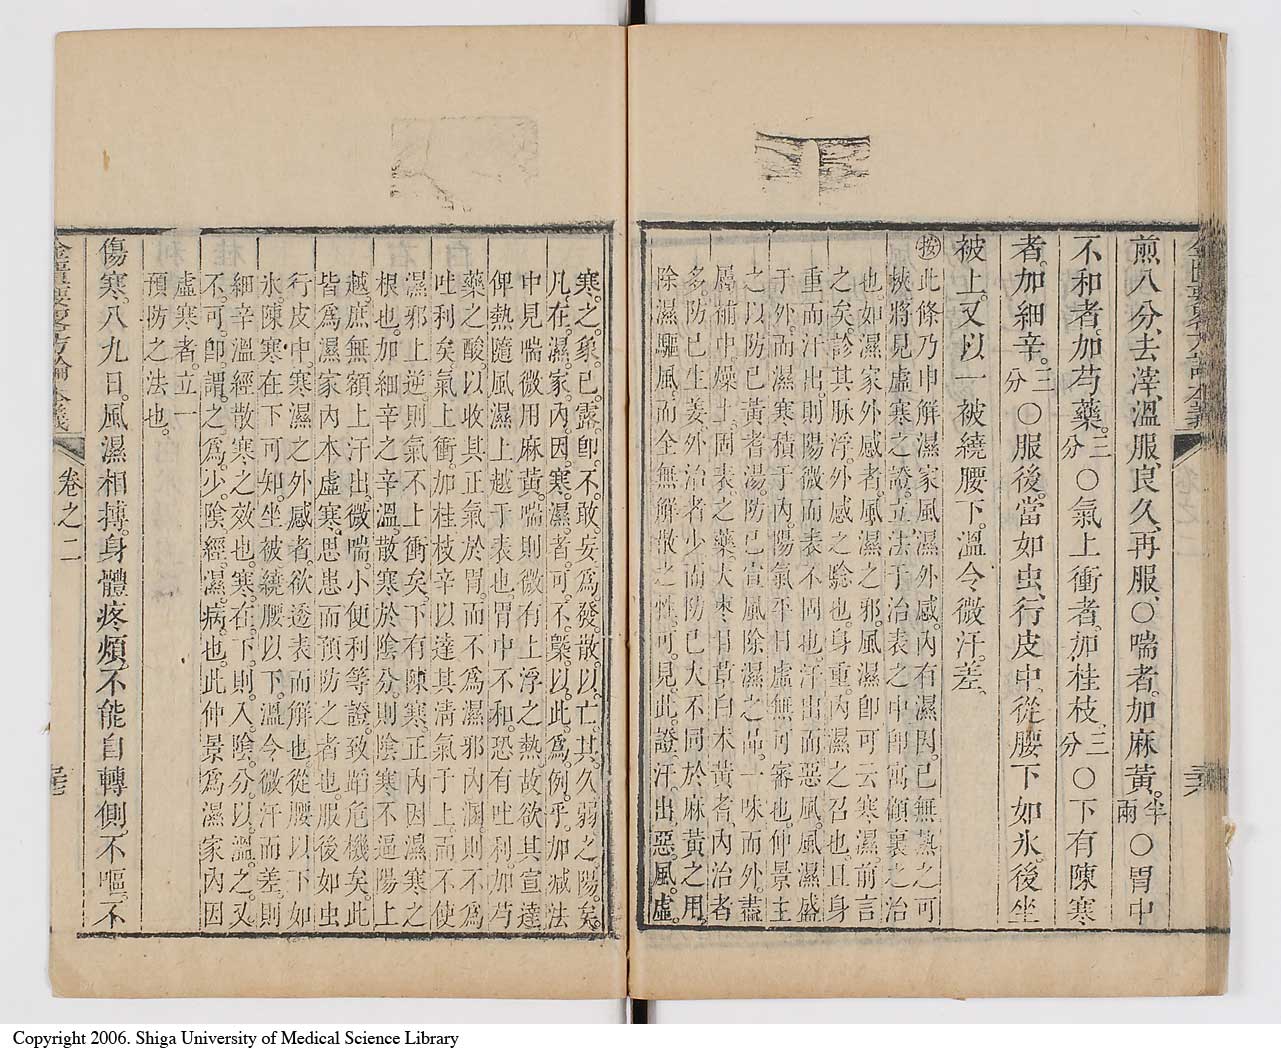 煎八分、去滓、溫服、良久、再服、○喘者。加麻黃。半兩○胃中
不和者。加芍藥。三分○氣上衝者。加桂枝。三分○下有陳寒
者。加細辛。三分○服後。當如虫行皮中。從腰下如氷。後坐
被上。又以一被繞腰下。溫令微汗。差。
按此條乃申解濕家風濕外感。內有濕因。已無熱之可
挾。將見虛寒之證。立法于治表之中。即寓顧裏之治
也。如濕家外感者。風濕之邪。風濕即可云寒濕。前言
之矣。診其脉浮。外感之驗也。身重。內濕之召也。且身
重而汗出。則陽微而表不固也。汗出而惡風。風濕盛
于外。而濕寒積于內。陽氣平日虛無可審也。仲景主
之以防已黃耆湯。防已宣風除濕之品。一味而外。盡
屬補中燥土。固表之藥。大棗甘草白术黃耆。內治者
多。防已生姜。外治者少。而防已大不同於麻黃之用。
除濕驅風。而全無解散之性。可見此證汗出惡風。虛
寒之象。已露即。不敢妄爲發散。以亡其久弱之陽矣。
凡在濕家。內因寒濕者。可不槩以此爲例乎。加減法
中見喘微用麻黃。喘則微有上浮之熱。故欲其宣達
俾熱隨風濕上越于表也。胃中不和。恐有吐利加芍
藥之酸。以收其正氣於胃。而不爲濕邪內涸。則不爲
吐利矣。氣上衝。加桂枝辛以達其清氣于上。而不使
濕邪上逆。則氣不上衝矣。下有陳寒。正內因濕寒之
根也。加細辛之辛溫。散寒於陰分。則陰寒不逼陽上
越。庶無額上汗出。微喘。小便利等證。致蹈危機矣。此
皆爲濕家內本虛寒。思患而預防之者也。服後如虫
行皮中。寒濕之外感者。欲透表而解也。從腰以下如
氷。陳寒在下可知。坐被繞腰以下。溫令微汗而差。則
細辛溫經散寒之效也。寒在下。則入陰分。以溫之。又
不可。即謂之爲少陰經濕病也。此仲景爲濕家內因
虛寒者。立一
預防之法也。
傷寒。八九日。風濕相搏。身體疼煩。不能自轉側。不嘔。不
卷之二